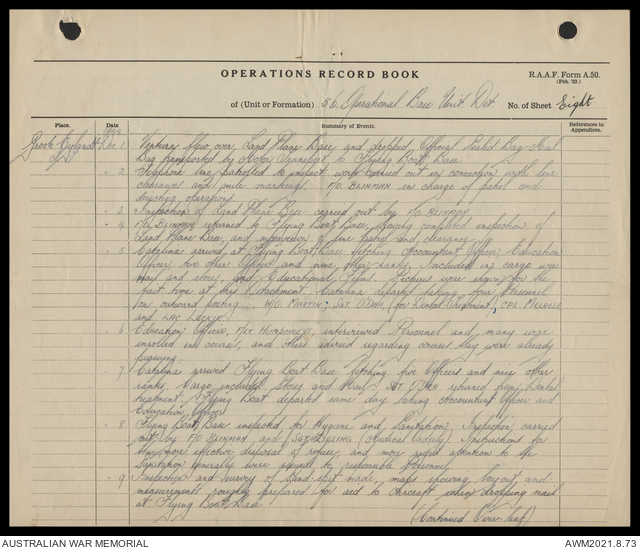 OPERATIONS RECORD BOOK
R.A.A.F. Form A.50.
(Feb. '33.)
of (Unit or Formation) 56 Operational Base Unit Det No. of Sheet Eight
Place. Date Summary of Events. References to Appendices.
Groote Eylandt Dec 1. Ventura flew over Land Plane Base and dropped Official Sealed Bag. Mail
Bag transported by Motor Transport to Flying Boat Base
" 2 Telephone line patrolled to inspect work carried out in connection with line
clearance and mile marking. F/O. BLINMAN in charge of patrol and
operations.
" 3 Inspection of Land Plane Base carried out by F/O. BLINMAN
" 4 F/O. BLINMAN returned to Flying Boat Base, having completed inspection of
Land Plane Base, and of line patrol and clearance.
" 5 Catalina arrived at Flying Boat Base fetching Accountant Officer, Education
Officer, two other Officers and nine other ranks. Included in cargo were
mail and stores, and Educational Films. Pictures were shown for the
first time at this Detachment. Catalina departed taking four Personnel
on outward posting W/O. MARTIN; SGT O'DEA, (for Dental Treatment), CPL. MELROSE
and LAC
" 6 Education Officer, F/LT HUMPHREYS, interviewed Personnel and many were
enrolled in courses, and others advised regarding courses they were already
pursuing.
" 7 Catalina arrived Flying Boat Base fetching five Officers and nine other
ranks. Cargo included Stores and Mail. SGT O'DEA returned from Dental
treatment. Flying Boat departed same day taking Accountant Officer and
Education Officer
" 8 Flying Boat Base inspected for Hygiene and Sanitation, Inspection carried
out by F/O BLINMAN and SGT (Medical Orderly). Instructions for
more effective disposal of refuse, and more rigid attention to the
Sanitation generally were issued to responsible Personnel
" 9 Inspection and survey of Land-strip made, maps showing layout and
measurements roughly prepared for aid to Aircraft when dropping mail
at Flying Boat Base
(Continued Over-leaf)
AUSTRALIAN WAR MEMORIAL
AWM2021.8.73